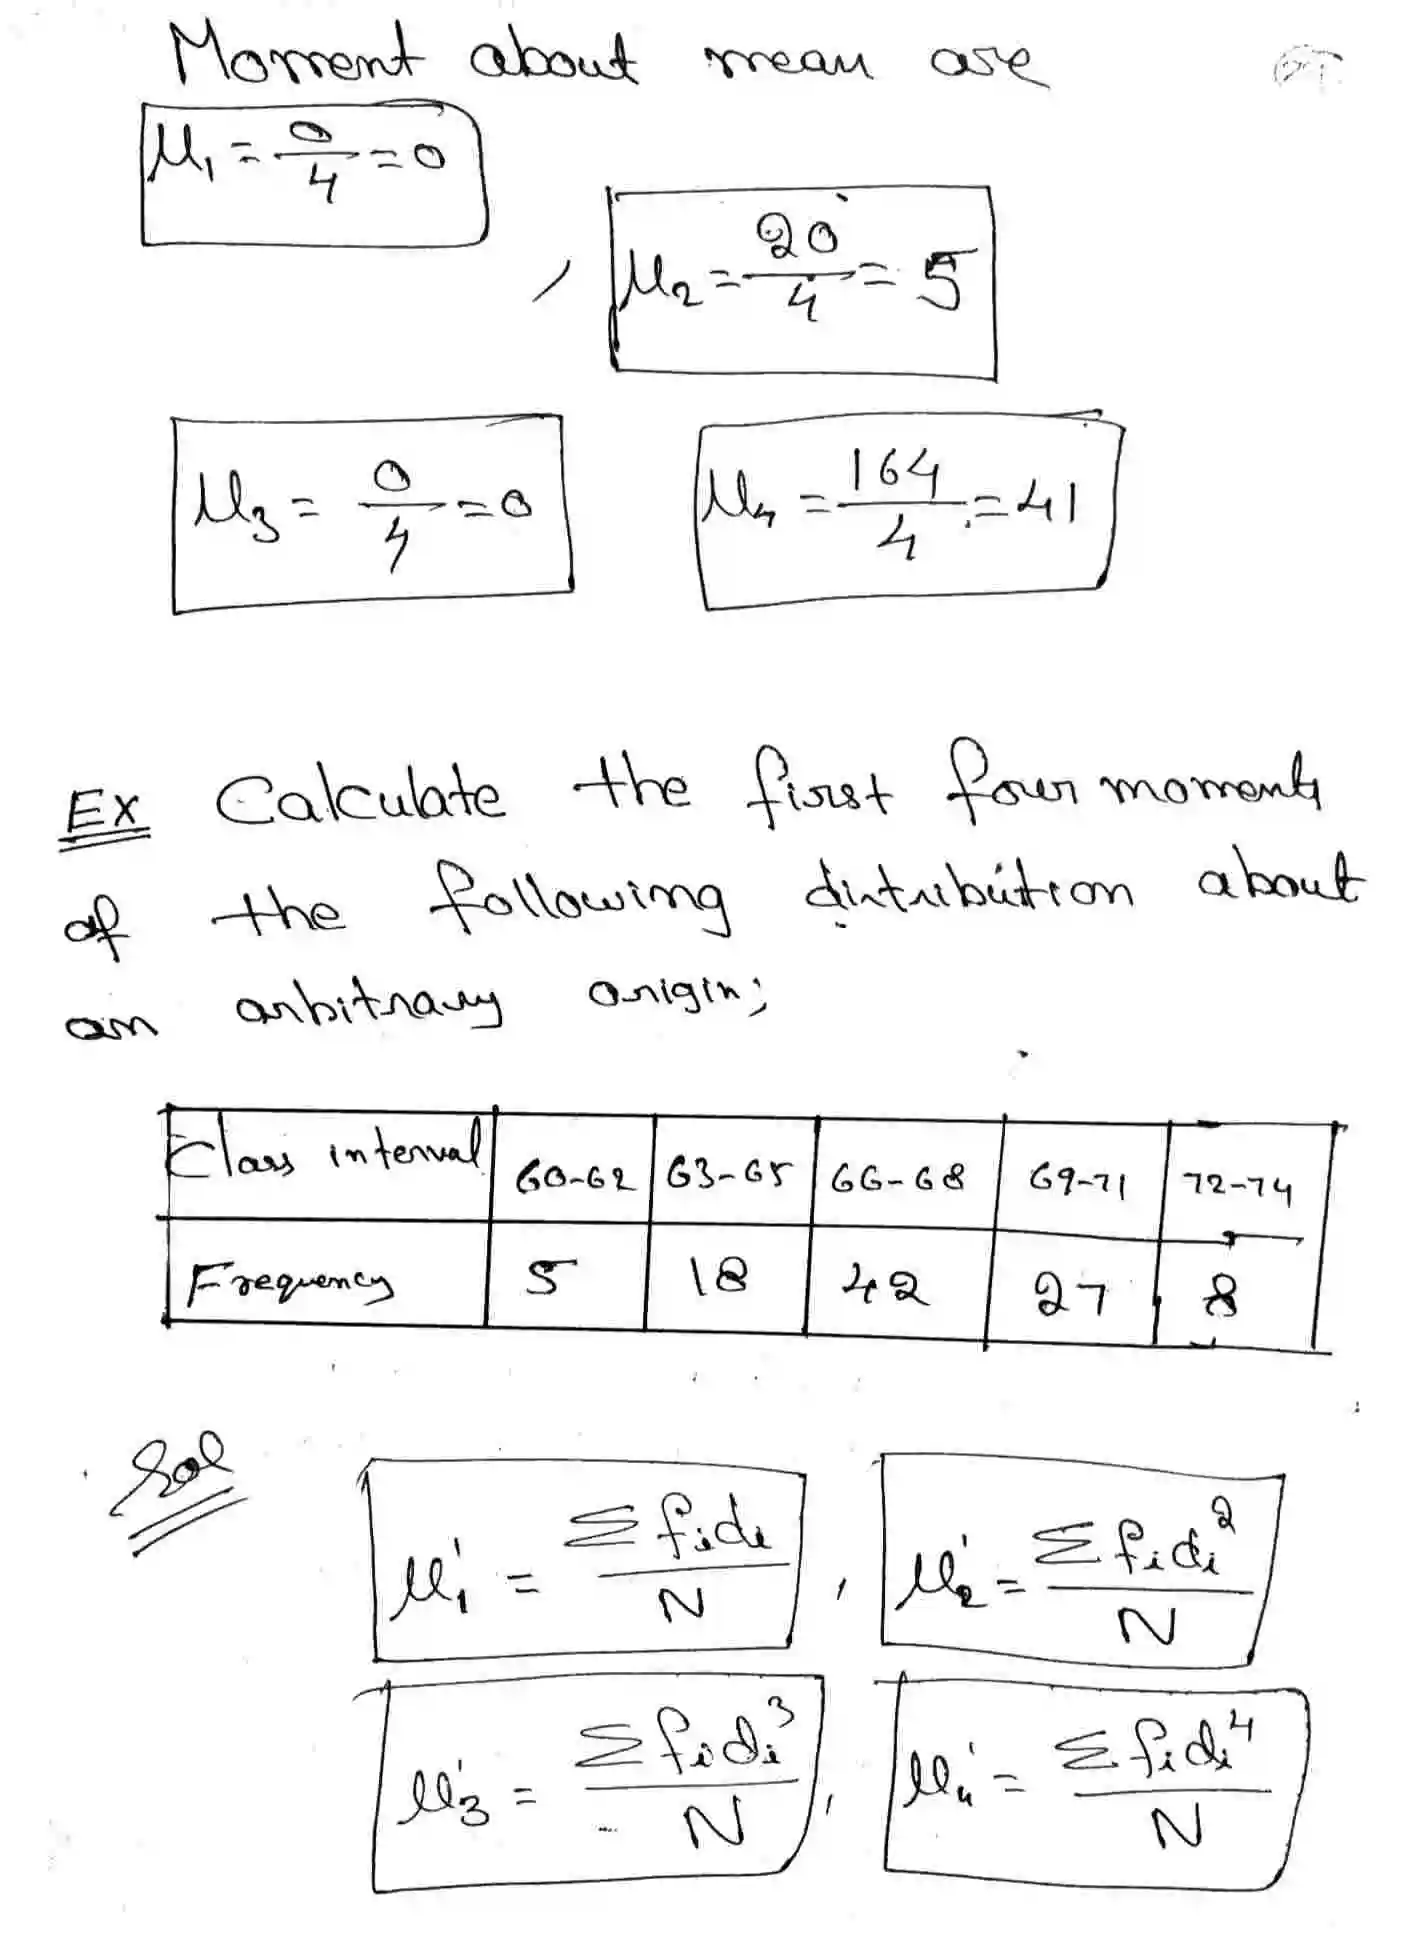 Moment about mean are
μ₁ = 0/4 = 0
, μ₂ = 20/4 = 5
μ₃ = 0/4 = 0
μ₄ = 164/4 = 41
Ex Calculate the first four moments
of the following distribution about
an arbitrary origin;
Class interval 60-62 63-65 66-68 69-71 72-74
Frequency 5 18 42 27 8
Sol
μ₁' = Σfᵢdᵢ/N , μ₂' = Σfᵢdᵢ²/N
μ₃' = Σfᵢdᵢ³/N , μ₄' = Σfᵢdᵢ⁴/N